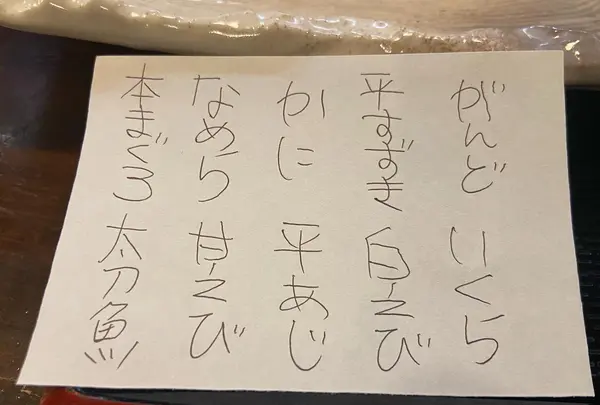 がんど いくら
平すずき 白えび
かに 平あじ
なめら 甘えび
本まぐろ 太刀魚